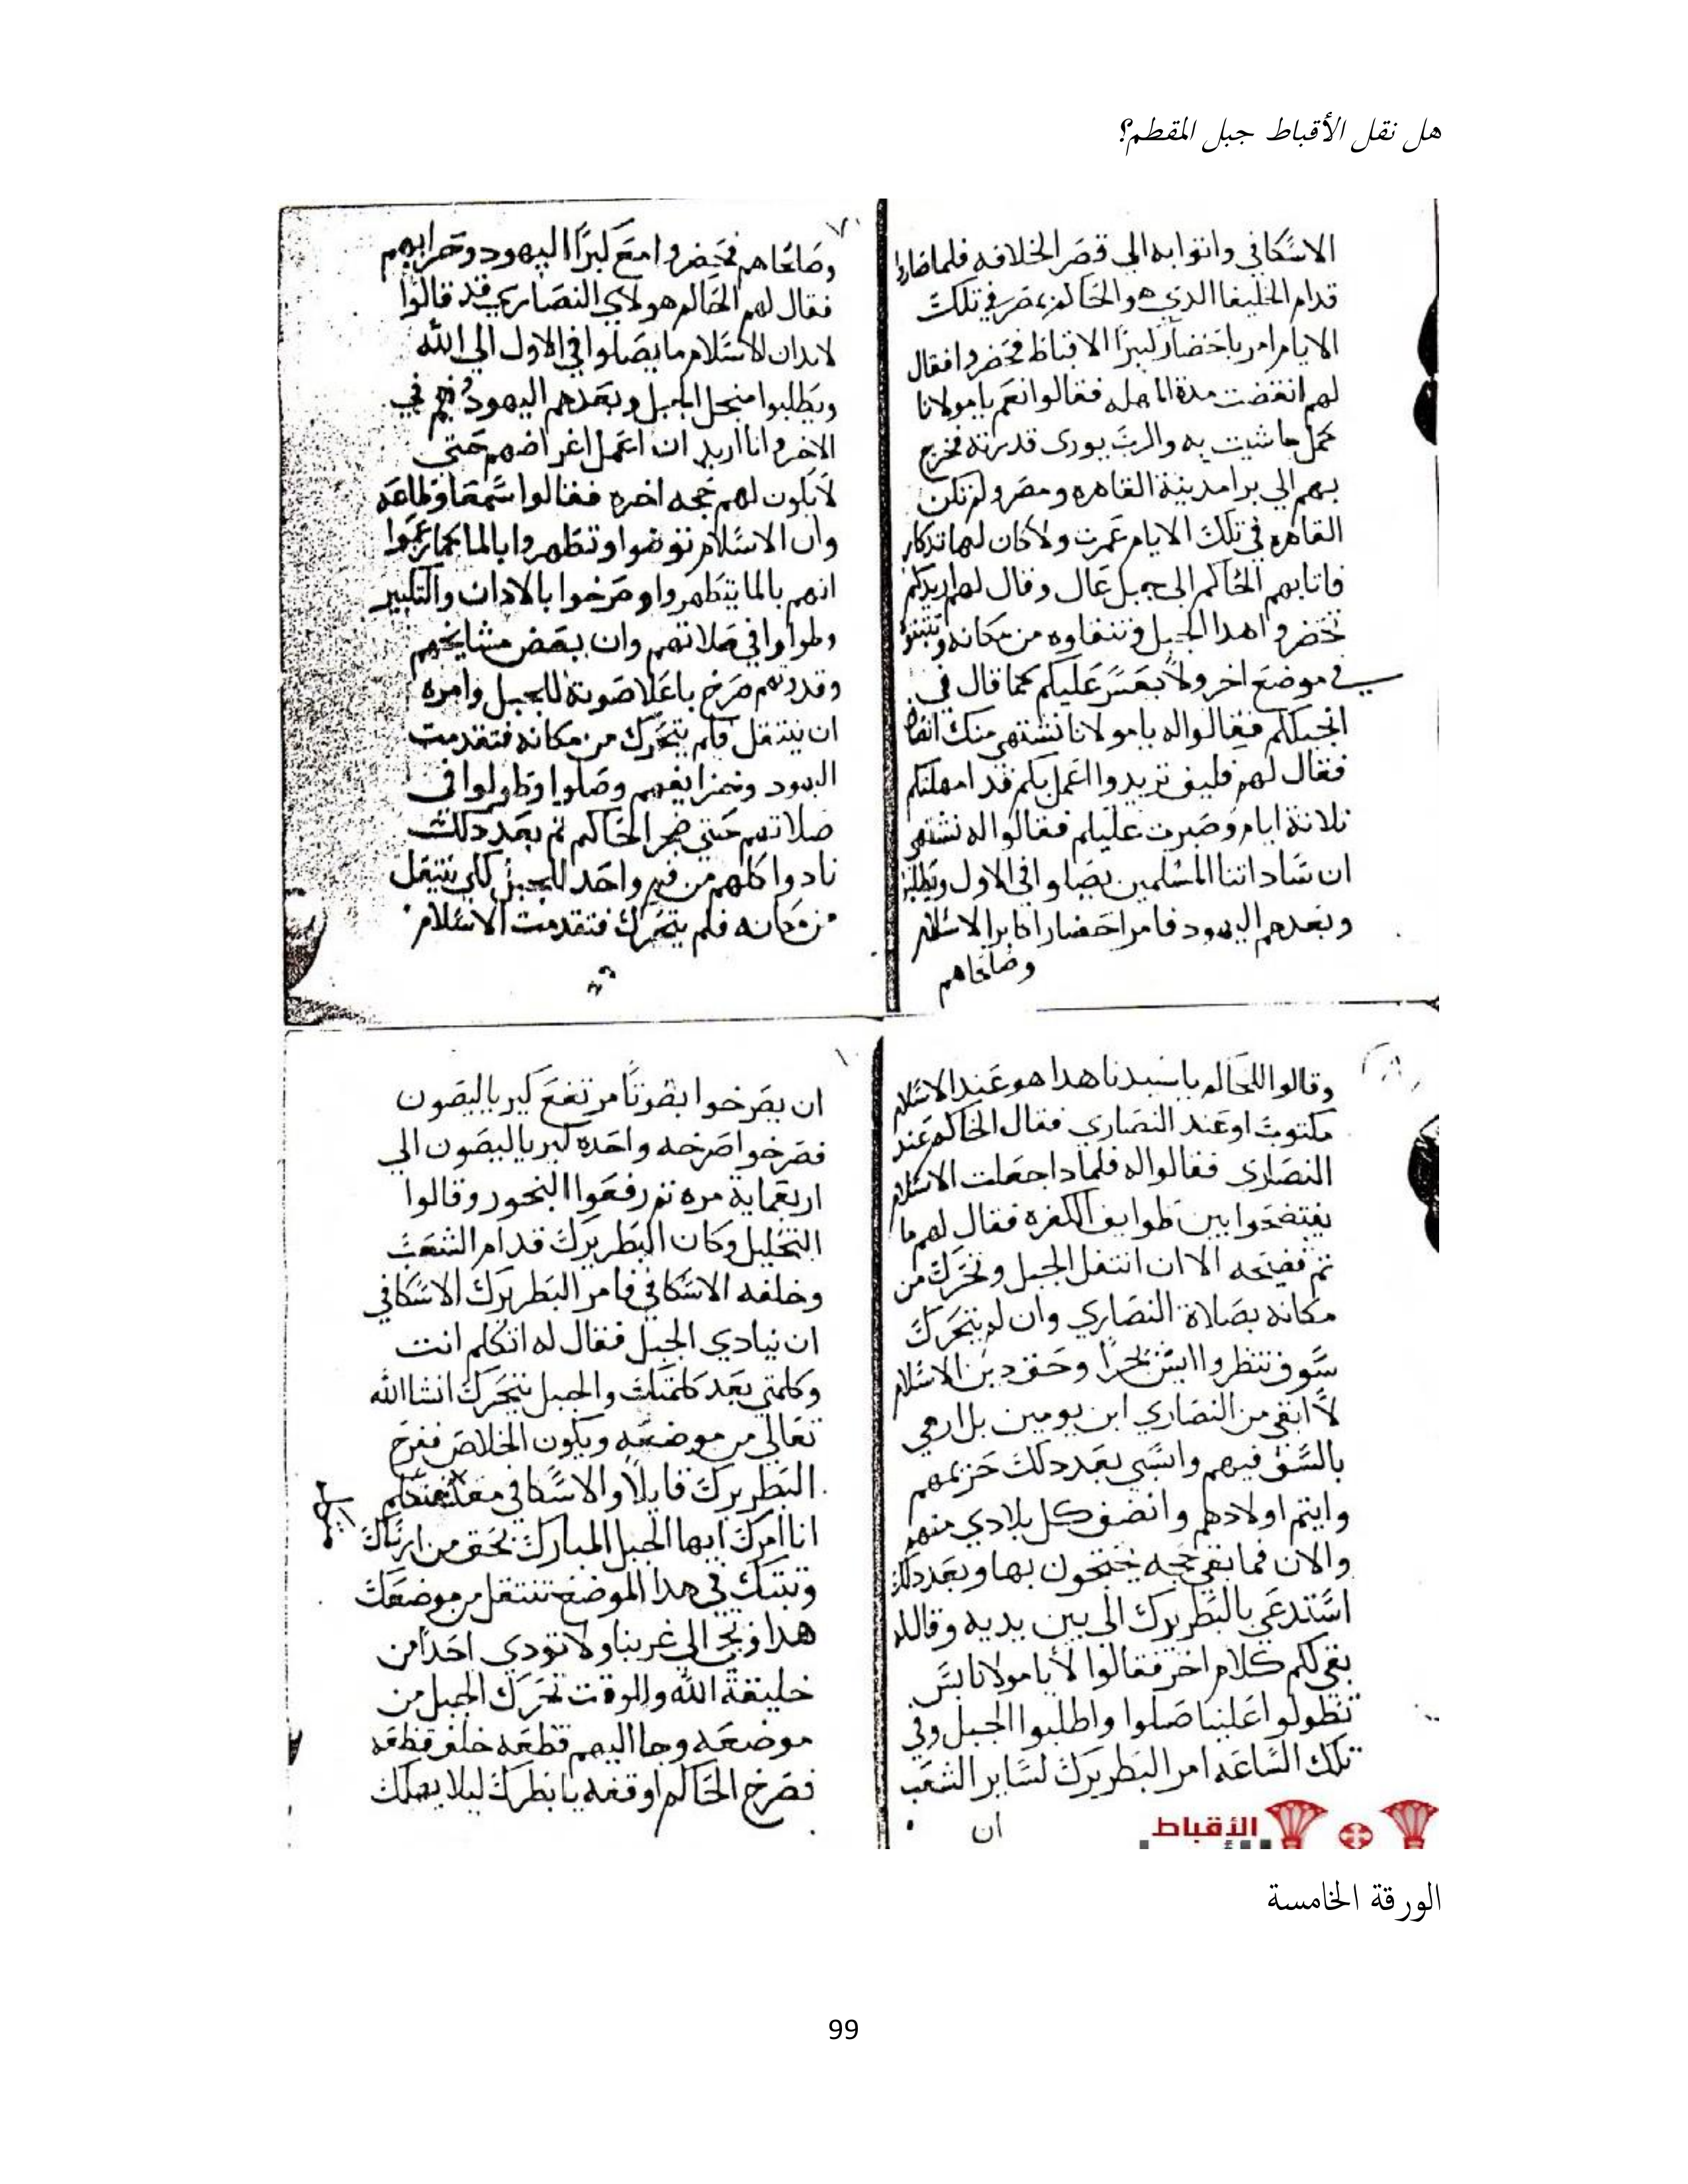 هل نقل الأقباط جبل المقطم؟
الاسكافي واتوا به الى قصر الخلافه فلما صاروا
قدام الخليفا الدي هو الحاكم بمصر في تلك
الايام امر باحضار كبرا الاقباط فحضروا فقال
لهم انقضت مدة المهله فقالوا نعم يا مولانا
كمل ما شيت به والرب يورى قدرته فخرج
بهم الي برا مدينة القاهره ومصر ولم تكن
القاهره في تلك الايام عمرت ولا كان لها تدكار
فاتا بهم الحاكم الى جبل عال وقال لهم اريدكم
تحضروا هدا الجبل وتنقلوه من مكانه
في موضع اخر ولا يعسر عليكم كما قال في
انجيلكم فقالوا له يا مولانا نشتهي منك
فقال لهم فكيف تريدوا اعمل بكم قد امهلتكم
تلاتة ايام وصبرت عليكم فقالوا له نشتهي
ان ساداتنا المسلمين يصلوا في الاول
وبعدهم اليهود فامر احضار اكابر الاسلام
وصلحاهم
وصلحاهم فحضروا مع كبرا اليهود وحزابهم
فقال لهم الحاكم هولاي النصاري قد قالوا
لابد ان الاسلام ما يصلوا في الاول الي الله
ويطلبوا منجل الجبل وبعدهم اليهود في
الاخر وانا اريد ان اعمل اغراضهم حتى
لا يكون لهم حجه اخره فقالوا سمعا وطاعه
وان الاسلام توضوا وتطهروا بالما كما زعموا
انهم بالما يتطهروا وصرخوا بالادان والتكبير
وطولوا في صلاتهم وان بعض مشايخهم
وقدوتهم صرخ باعلا صوته للجبل وامره
ان ينتقل فلم يتحرك من مكانه فتقدمت
اليهود وصلوا وطولوا في
صلاتهم حتي ضجر الحاكم تم بعد دلك
نادوا كلهم من فم واحد للجبل لكي ينتقل
من مكانه فلم يتحرك فتقدمت الاسلام
وقالوا للحاكم يا سيدنا هدا هو عند الاسلام
مكتوب او عند النصاري فقال الحاكم عند
النصاري فقالوا له فلمادا جعلت الاسلام
يفتضحوا بين طوايف الكفره فقال لهم ما
تم فضيحه الا ان انتقل الجبل وتحرك من
مكانه بصلاة النصاري وان لم يتحرك
سوف تنظروا ايش يجرا وحق دين الاسلام
لا ابقي من النصاري ابن يومين بل ارمي
بالسيف فيهم واسبي بعد دلك حريمهم
وايتم اولادهم وانضف كل بلادي منهم
والان فما بقي حجه يحتجون بها وبعد دلك
استدعي بالبطريرك الي بين يديه وقال له
بقي لكم كلام اخر فقالوا لا يا مولانا بس
تطولوا علينا صلوا واطلبوا الجبل وفي
تلك الساعه امر البطريرك لساير الشعب
ان
ان يصرخوا بصوتا مرتفع كيرياليصون
فصرخوا صرخه واحده كيرياليصون الي
اربعماية مره تم رفعوا البخور وقالوا
التحليل وكان البطريرك قدام الشعب
وخلفه الاسكافي فامر البطريرك الاسكافي
ان ينادي الجبل فقال له اتكلم انت
وكلمتي بعد كلمتك والجبل يتحرك انشا الله
تعالي من موضعه ويكون الخلاص فصرخ
البطريرك قايلا والاسكافي معا
انا امرك ايها الجبل المبارك بحق من ارساك
وتبتك في هدا الموضع تنتقل من موضعك
هدا وتجي الي غربنا ولا تودي احدا من
خليقة الله وللوقت تحرك الجبل من
موضعه وجا اليهم قطعه خلف قطعه
فصرخ الحاكم اوقفه يا بطرك ليلا يهلك
الأقباط
الورقة الخامسة
99